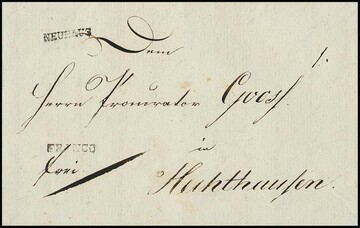 NEUHAUS
Dem
Herrn Procurator Gooss.
FRANCO
in
frei
Hechthausen.